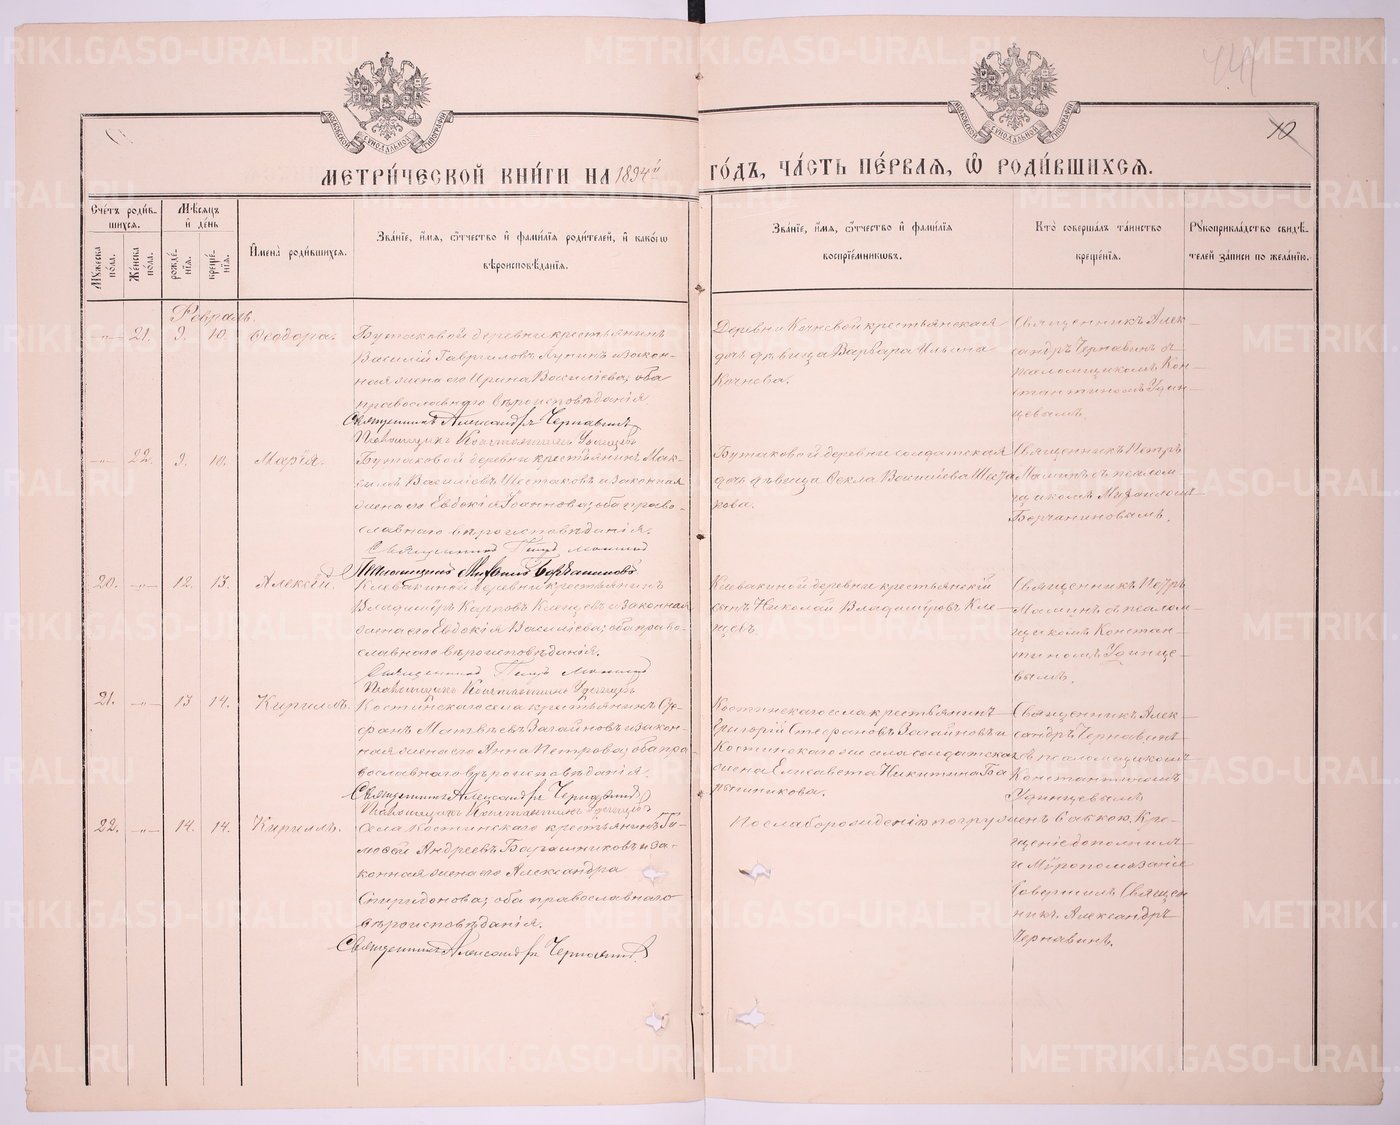 МЕТРИ́ЧЕСКОЙ КНИ́ГИ НА 1894й ГО́ДЪ, ЧА́СТЬ ПЕ́РВАЯ, Ѡ РОДИ́ВШИХСЯ.
МОСКОВСКОЙ СѴНОДАЛЬНОЙ ТИПОГРАФІИ
МОСКОВСКОЙ СѴНОДАЛЬНОЙ ТИПОГРАФІИ
10
Сче́тъ роди́в-
шихся.
Мѹ́жеска по́ла.
Же́нска по́ла.
Мѣ́сяцъ
и҆ де́нь
рожде́-
нїя.
креще́-
нїя.
И҆мена̀ роди́вшихся.
Зва́нїе, и҆́мя, ѻ҆́тчество и҆ фами́лїя роди́телей, и҆ како́гѡ
вѣроисповѣ́данїя.
Зва́нїе, и҆́мя, ѻ҆́тчество и҆ фами́лїя
воспрїе́мникѡвъ.
Кто̀ соверша́лъ та́инство
креще́нїя.
Рѹкоприкла́дство свидѣ́-
телей за́писи по жела́нїю.
Февраль.
21. 9. 10. Ѳеодора.
Бутаковой деревни крестьянинъ
Василій Гавриловъ Лупинъ и закон-
ная жена его Ирина Василіева; оба
православнаго вѣроисповѣданія.
Священникъ Александръ Чернавинъ
Псаломщикъ Константинъ Удинцевъ
Деревни Кочневой крестьянская
дочь дѣвица Варвара Ильина
Кочнева.
Священникъ Алек-
сандръ Чернавинъ съ
псаломщикомъ Кон-
стантиномъ Удин-
цевымъ.
22. 9. 10. Марія.
Бутаковой деревни крестьянинъ Мак-
симъ Василіевъ Шестаковъ и законная
жена его Евдокія Іоаннова; оба право-
славнаго вѣроисповѣданія.
Священникъ Петръ Маминъ
Псаломщикъ Михаилъ Борчаниновъ
Бутаковой деревни солдатская
дочь дѣвица Ѳекла Василіева Шеста-
кова.
Священникъ Петръ
Маминъ съ псалом-
щикомъ Михаиломъ
Борчаниновымъ.
20. 12. 13. Алексій.
Клевакиной деревни крестьянинъ
Владиміръ Карповъ Клещевъ и законная
жена его Евдокія Василіева; оба право-
славнаго вѣроисповѣданія.
Священникъ Петръ Маминъ
Псаломщикъ Константинъ Удинцевъ
Клевакиной деревни крестьянскій
сынъ Николай Владиміровъ Кле-
щевъ.
Священникъ Петръ
Маминъ съ псалом-
щикомъ Констан-
тиномъ Удинце-
вымъ.
21. 13 14. Кириллъ.
Костинскаго села крестьянинъ Сте-
фанъ Матвѣевъ Загайновъ и закон-
ная жена его Анна Петрова; оба пра-
вославнаго вѣроисповѣданія.
Священникъ Александръ Чернавинъ
Псаломщикъ Константинъ Удинцевъ
Костинскаго села крестьянинъ
Григорій Стефановъ Загайновъ и
Костинскаго же села солдатская
жена Елисавета Никитина Ба-
Священникъ Алек-
сандръ Чернавинъ
съ псаломщикомъ
Константиномъ
Удинцевымъ
22. 14. 14. Кириллъ.
Села Костинскаго крестьянинъ Ти-
моѳей Андреевъ и за-
конная жена его Александра
Спиридонова; оба православнаго
вѣроисповѣданія.
Священникъ Александръ Чернавинъ
По слаборожденію погруженъ бабкою. Кре-
щеніе дополнилъ
и Мѵропомазаніе
совершилъ Священ-
никъ Александръ
Чернавинъ.
METRIKI.GASO-URAL.RU